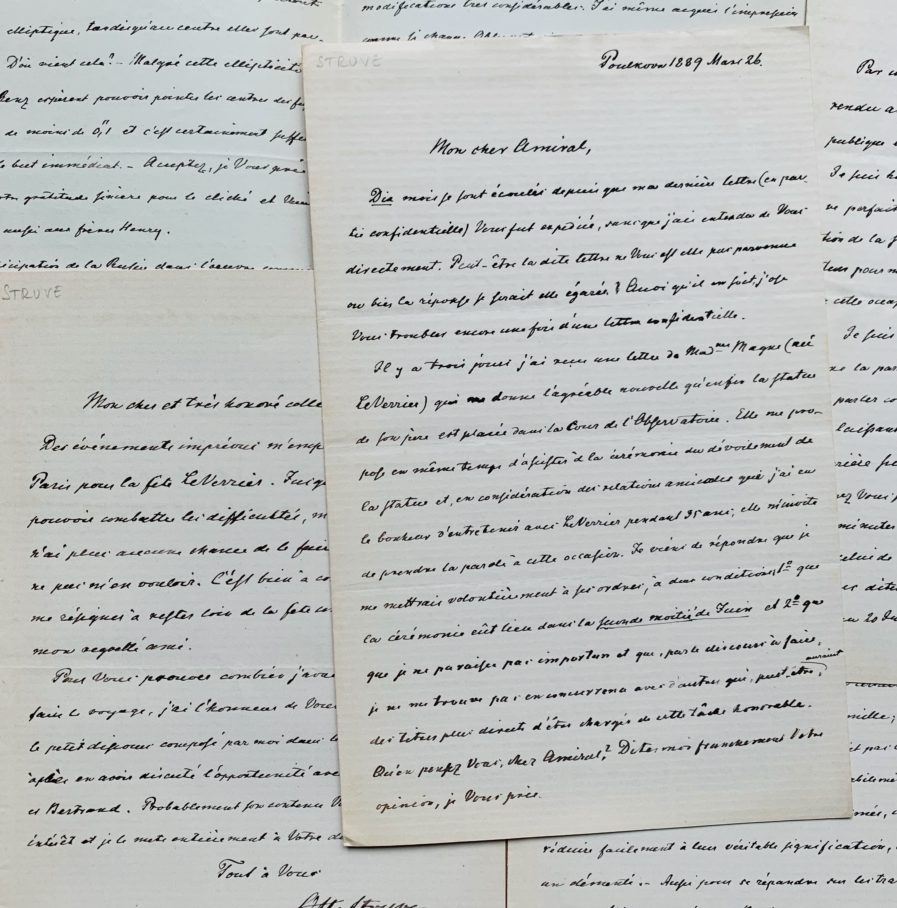 elliptique, tandis qu'au centre elles sont par-
D'où vient cela? — Malgré cette ellipticité
Henry espèrent pouvoir pointer les centres des
de moins de 0",1 et c'est certainement suffi
le but immédiat. — Acceptez, je Vous prie
gratitude sincère pour le cliché et
aussi aux frères Henry.
participation de la Russie dans l'oeuvre
modifications très considérables. J'ai même acquis l'impression
STRUVE
Poulkova 1889 Mars 26.
Mon cher Amiral,
Dix mois se sont écoulés depuis que ma dernière lettre (en par-
tie confidentielle) Vous fut expédiée, sans que j'aie entendu de Vous
directement. Peut-être la dite lettre ne Vous est elle pas parvenue
ou bien la réponse se serait elle égarée? Quoi qu'il en soit, j'ose
Vous troubler encore une fois d'une lettre confidentielle.
Il y a trois jours j'ai reçu une lettre de Mad.me Magne (née
LeVerrier) qui me donne l'agréable nouvelle qu'enfin la statue
de son père est placée dans la Cour de l'Observatoire. Elle me pro-
pose en même temps d'assister à la cérémonie du dévoilement de
la statue et, en considération des relations amicales que j'ai eu
le bonheur d'entretenir avec LeVerrier pendant 35 ans, elle m'invite
de prendre la parole à cette occasion. Je viens de répondre que je
me mettrais volontièrement à ses ordres, à deux conditions, 1º que
la cérémonie eût lieu dans la seconde moitié de Juin et 2º que
que je ne paraisse pas importun et que, par le discours à faire,
je ne me trouve pas en concurrence avec d'autres qui, peut-être, auraient
des titres plus directs d'être chargés de cette tâche honorable.
Qu'en pensez Vous, cher Amiral? Dites moi franchement Votre
opinion, je Vous prie.
STRUVE
Mon cher et très honoré collè
Des événements imprévus m'emp
Paris pour la fête LeVerrier. Jusqu
pouvoir combattre les difficultés, m
n'ai plus aucune chance de le fair
ne pas m'en vouloir. C'est bien à co
me résigner à rester loin de la fête co
mon regretté ami.
Pour Vous prouver combien j'avai
faire le voyage, j'ai l'honneur de Vous
le petit discours composé par moi dans l
après en avoir discuté l'opportunité ave
et Bertrand. Probablement son contenu
intérêt et je le mets entièrement à Votre d
Tout à Vous
Par
rendu
publique
Je suis
ne parfait
tion de la
tems pour
cette occas
Je suis
la par
parler
plaisan
Vous
minutes
celui de
dite
20
mille;
réduire facilement à leur véritable signification,
un démenti. — Aussi pour se répandre sur les tra